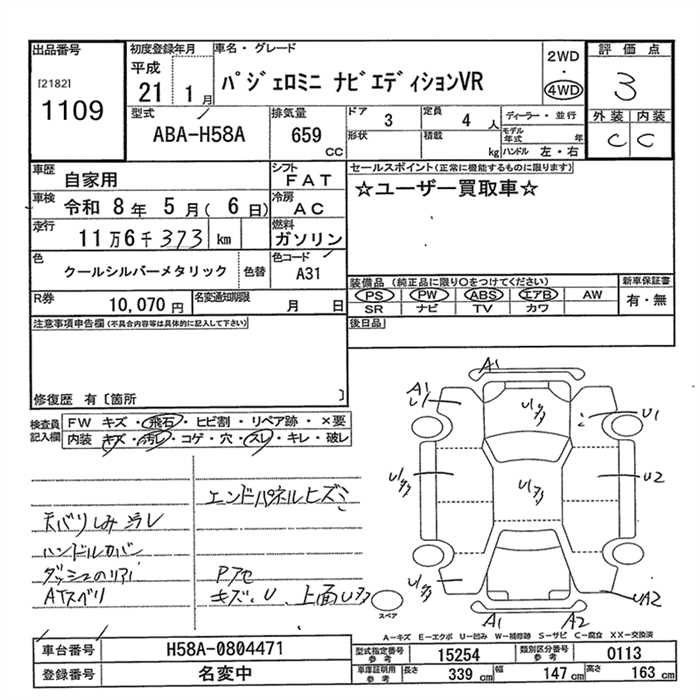 出品番号
[2182]
1109
初度登録年月
平成
21 1月
車名・グレード
パジェロミニ ナビエディションVR
2WD
・
4WD
評価点
3
外装 内装
C C
型式
ABA-H58A
排気量
659
CC
ドア
3
定員
4 人
形状
積載
kg
ディーラー・並行
モデル年式 年
ハンドル 左・右
車歴
自家用
シフト
FAT
車検
令和 8年 5月( 6日)
冷房
AC
走行
11万6千373 km
燃料
ガソリン
色
クールシルバーメタリック
色替
色コード
A31
R券
10,070円
名変通知期限
月 日
セールスポイント(正常に機能するものに限ります)
☆ユーザー買取車☆
装備品 (純正品に限り○をつけてください)
PS PW ABS エアB AW
SR ナビ TV カワ
新車保証書
有・無
後日品
注意事項申告欄(不具合内容等は具体的に記入して下さい)
修復歴 有〔箇所 〕
検査員記入欄
FW キズ・飛石・ヒビ割・リペア跡・×要
内装 キズ・汚レ・コゲ・穴・スレ・キレ・破レ
天バリしみ汚レ
ハンドルカバー
ATスベリ
エンドパネルヒズミ
キズ、U、上面
スペア
A1
A1
U1
U2
UA2
A1
A2
A-キズ E-エクボ U-凹み W-補修跡 S-サビ C-腐食 XX-交換済
車台番号
H58A-0804471
登録番号
名変中
型式指定番号 参考
15254
類別区分番号 参考
0113
車庫証明用 参考
長さ 339 cm
幅 147 cm
高さ 163 cm